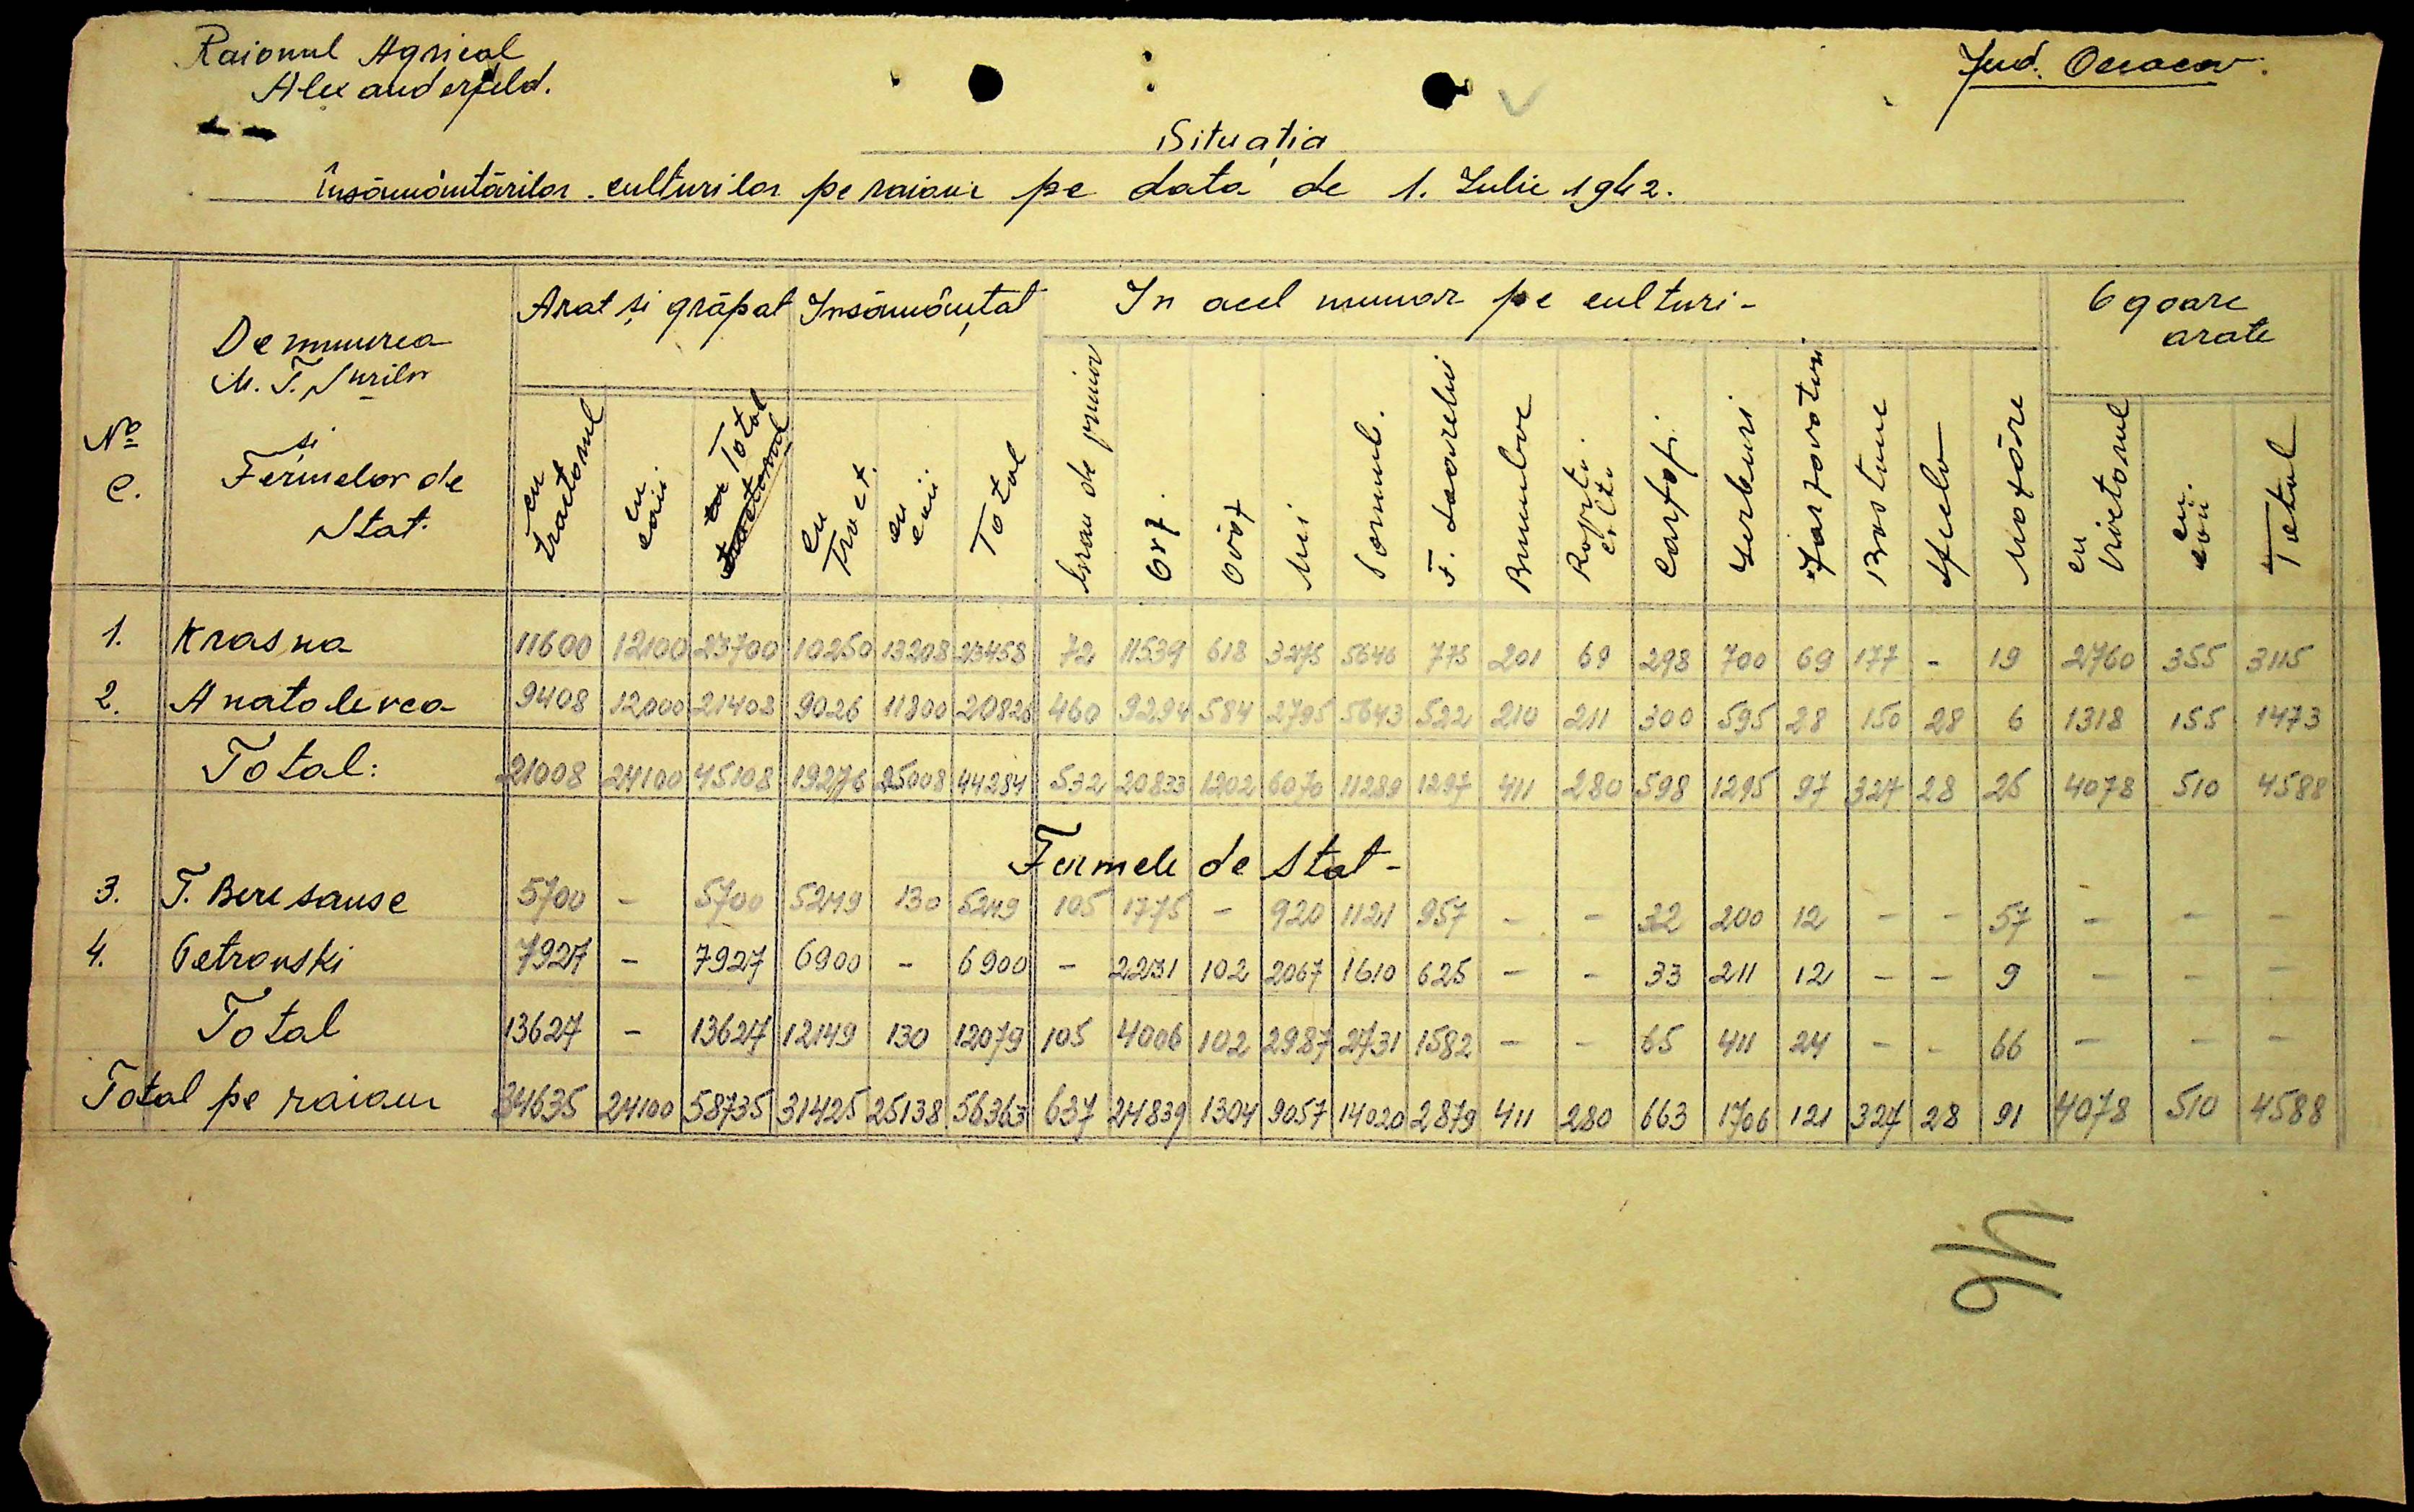 Raionul Agricol
Alexanderfeld.
Jud. Oceacov.
Situația
însămânțărilor culturilor pe raion pe data de 1. Iulie 1942.
No
C.
Denumirea
M. T. Surilor
și
Fermelor de
Stat.
Arat și grăpat
Insămânțat
In acel numar pe culturi-
Ogoare
arate
cu tractorul
cu caii
Total
cu Tract.
cu caii
Total
Grau de primar
Orz
Ovăz
Mei
Porumb.
F. Soarelui
Bumbac
Cartofi
Ierburi
Zarzavaturi
Bostane
Sfecla
Mazăre
cu tractorul
cu caii
Total
1. Krasna 11600 12100 23700 10250 13208 23458 72 11539 618 3275 5646 775 201 69 298 700 69 177 - 19 2760 355 3115
2. Anatolevca 9408 12000 21408 9026 11800 20826 460 9294 584 2795 5643 522 210 211 300 595 28 150 28 6 1318 155 1473
Total: 21008 24100 45108 19276 25008 44284 532 20833 1202 6070 11289 1297 411 280 598 1295 97 327 28 25 4078 510 4588
Fermele de Stat-
3. T. Beresanse 5700 - 5700 5249 130 5249 105 1775 - 920 1121 957 - - 32 200 12 - - 57 - - -
4. Petrovski 7927 - 7927 6900 - 6900 - 2231 102 2067 1610 625 - - 33 211 12 - - 9 - - -
Total 13627 - 13627 12149 130 12079 105 4006 102 2987 2731 1582 - - 65 411 24 - - 66 - - -
Total pe raion 34635 24100 58735 31425 25138 56363 637 24839 1304 9057 14020 2879 411 280 663 1706 121 327 28 91 4078 510 4588